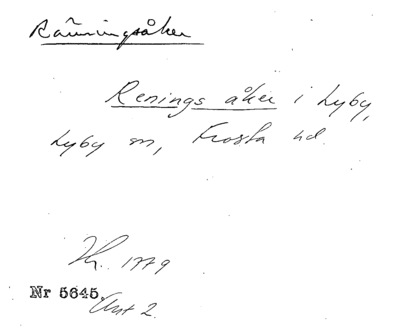 Rämningsåker
Renings åker i Lyby,
Lyby sn, Frosta hd.
1779
Nr 5645.
Akt 2.